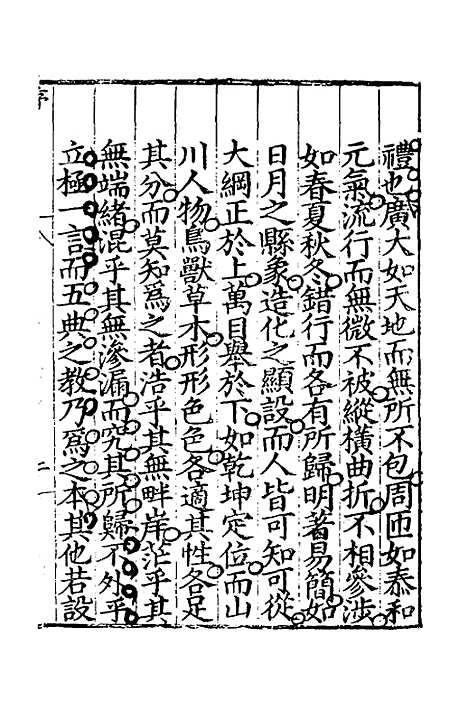 禮也廣大如天地而無所不包周匝如泰和
元氣流行而無微不被縱橫曲折不相參涉
如春夏秋冬錯行而各有所歸明著易簡如
日月之縣象造化之顯設而人皆可知可從
大綱正於上萬目舉於下如乾坤定位而山
川人物鳥獸草木形形色色各適其性各足
其分而莫知爲之者浩乎其無畔岸茫乎其
無端緒混乎其無滲漏而究其所歸不外乎
立極一言而五典之教乃爲之本其他若設
序